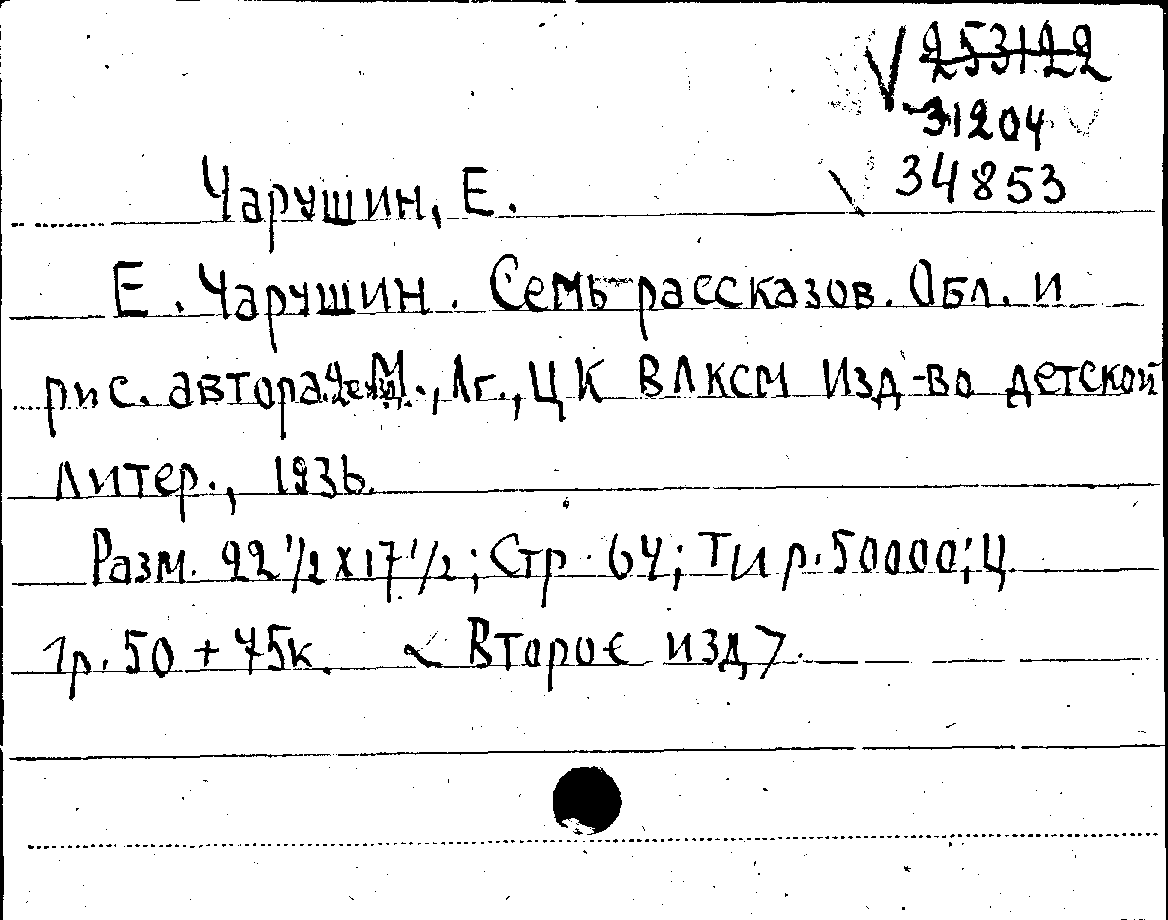 √ 253122
31204 √
34853
Чарушин, Е.
Е. Чарушин. Семь рассказов. Обл. и
рис. автора. М., Лг., ЦК ВЛКСМ Изд-во детской
литер., 1936.
Разм. 22 1/2 х 17 1/2; Стр. 64; Тир. 50000; Ц.
1р. 50 + 75к. < Второе изд >.